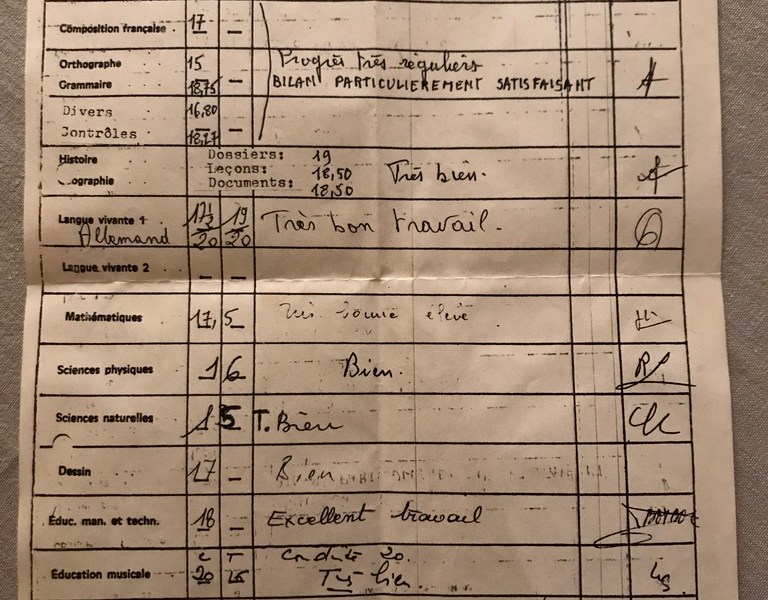 Composition française 17 —
Orthographe 15 Progrès très réguliers
Grammaire 18,75 — BILAN PARTICULIEREMENT SATISFAISANT
Divers 16,80
Contrôles 18,17 —
Histoire Dossiers: 19
Leçons: 18,50 Très bien.
ographie Documents: 18,50
Langue vivante 1 17½/20 19/20 Très bon travail.
Allemand
Langue vivante 2 — —
Mathématiques 17,5 Très bonne élève
Sciences physiques 16 Bien.
Sciences naturelles 15 T. Bien
Dessin 17 — Bien
Éduc. man. et techn. 18 — Excellent travail
C T Conduite 20.
Éducation musicale 20 Très bien